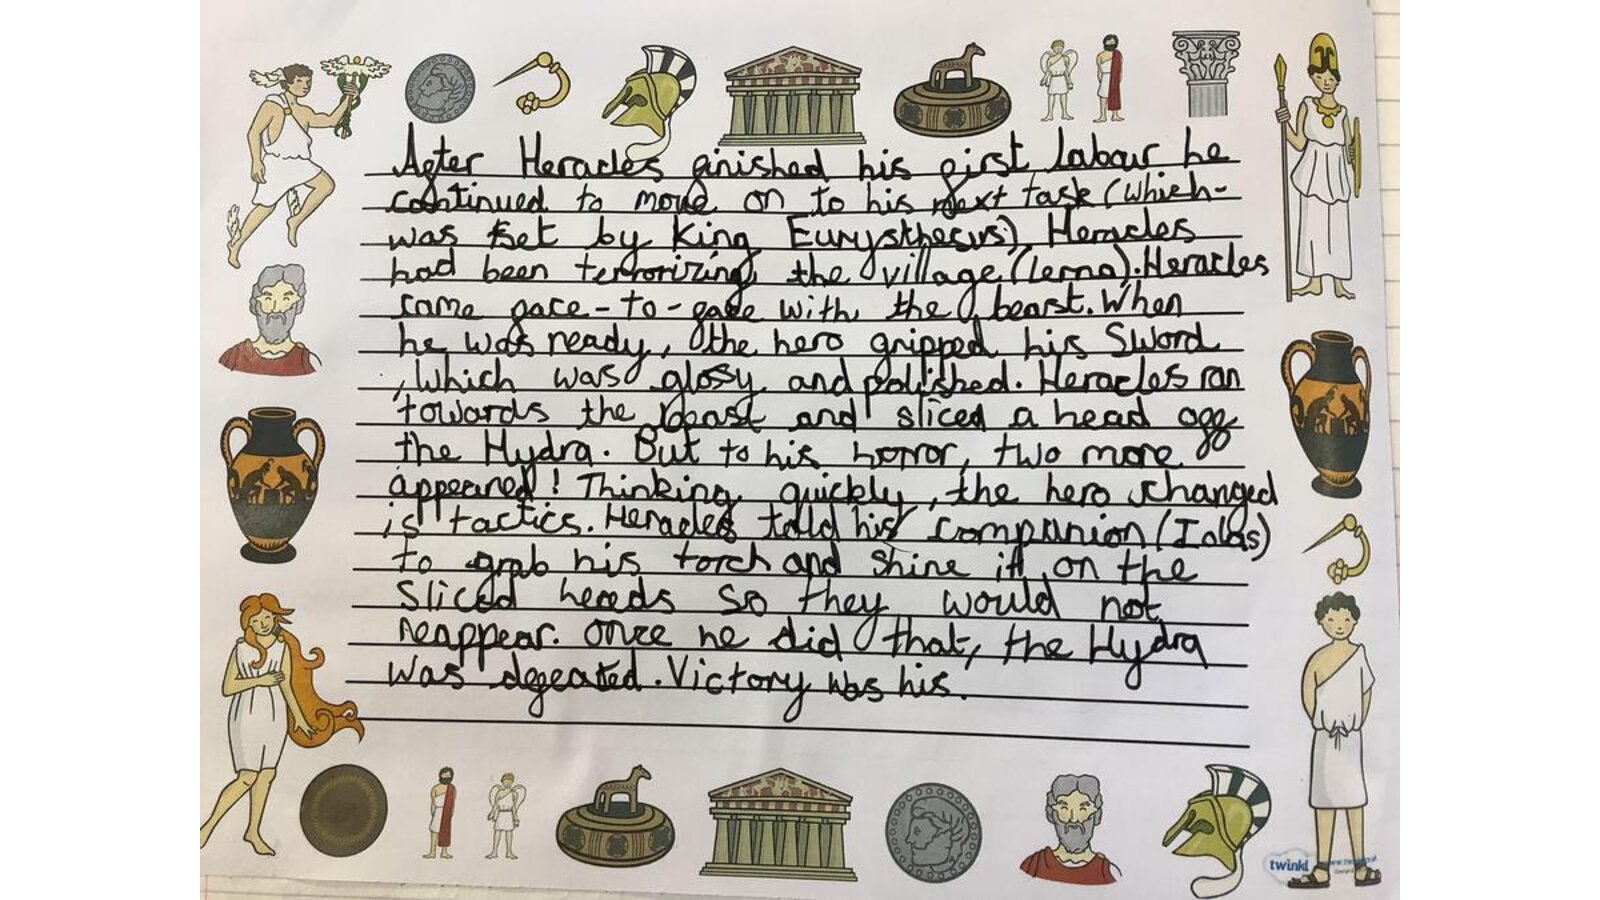 After Heracles finished his first labour he
continued to move on to his next task (which
was set by King Eurysthesus) Heracles
had been terrorizing the village (lerna). Heracles
came face-to-face with the beast. When
he was ready, the hero gripped his Sword
, which was glosy and polished. Heracles ran
towards the beast and sliced a head off
the Hydra. But to his horror, two more
appeared! Thinking quickly, the hero changed
is tactics. Heracles told his companion (Iolas)
to grab his torch and shine it on the
sliced heads so they would not
reappear. Once he did that, the Hydra
was defeated. Victory was his.
twinkl